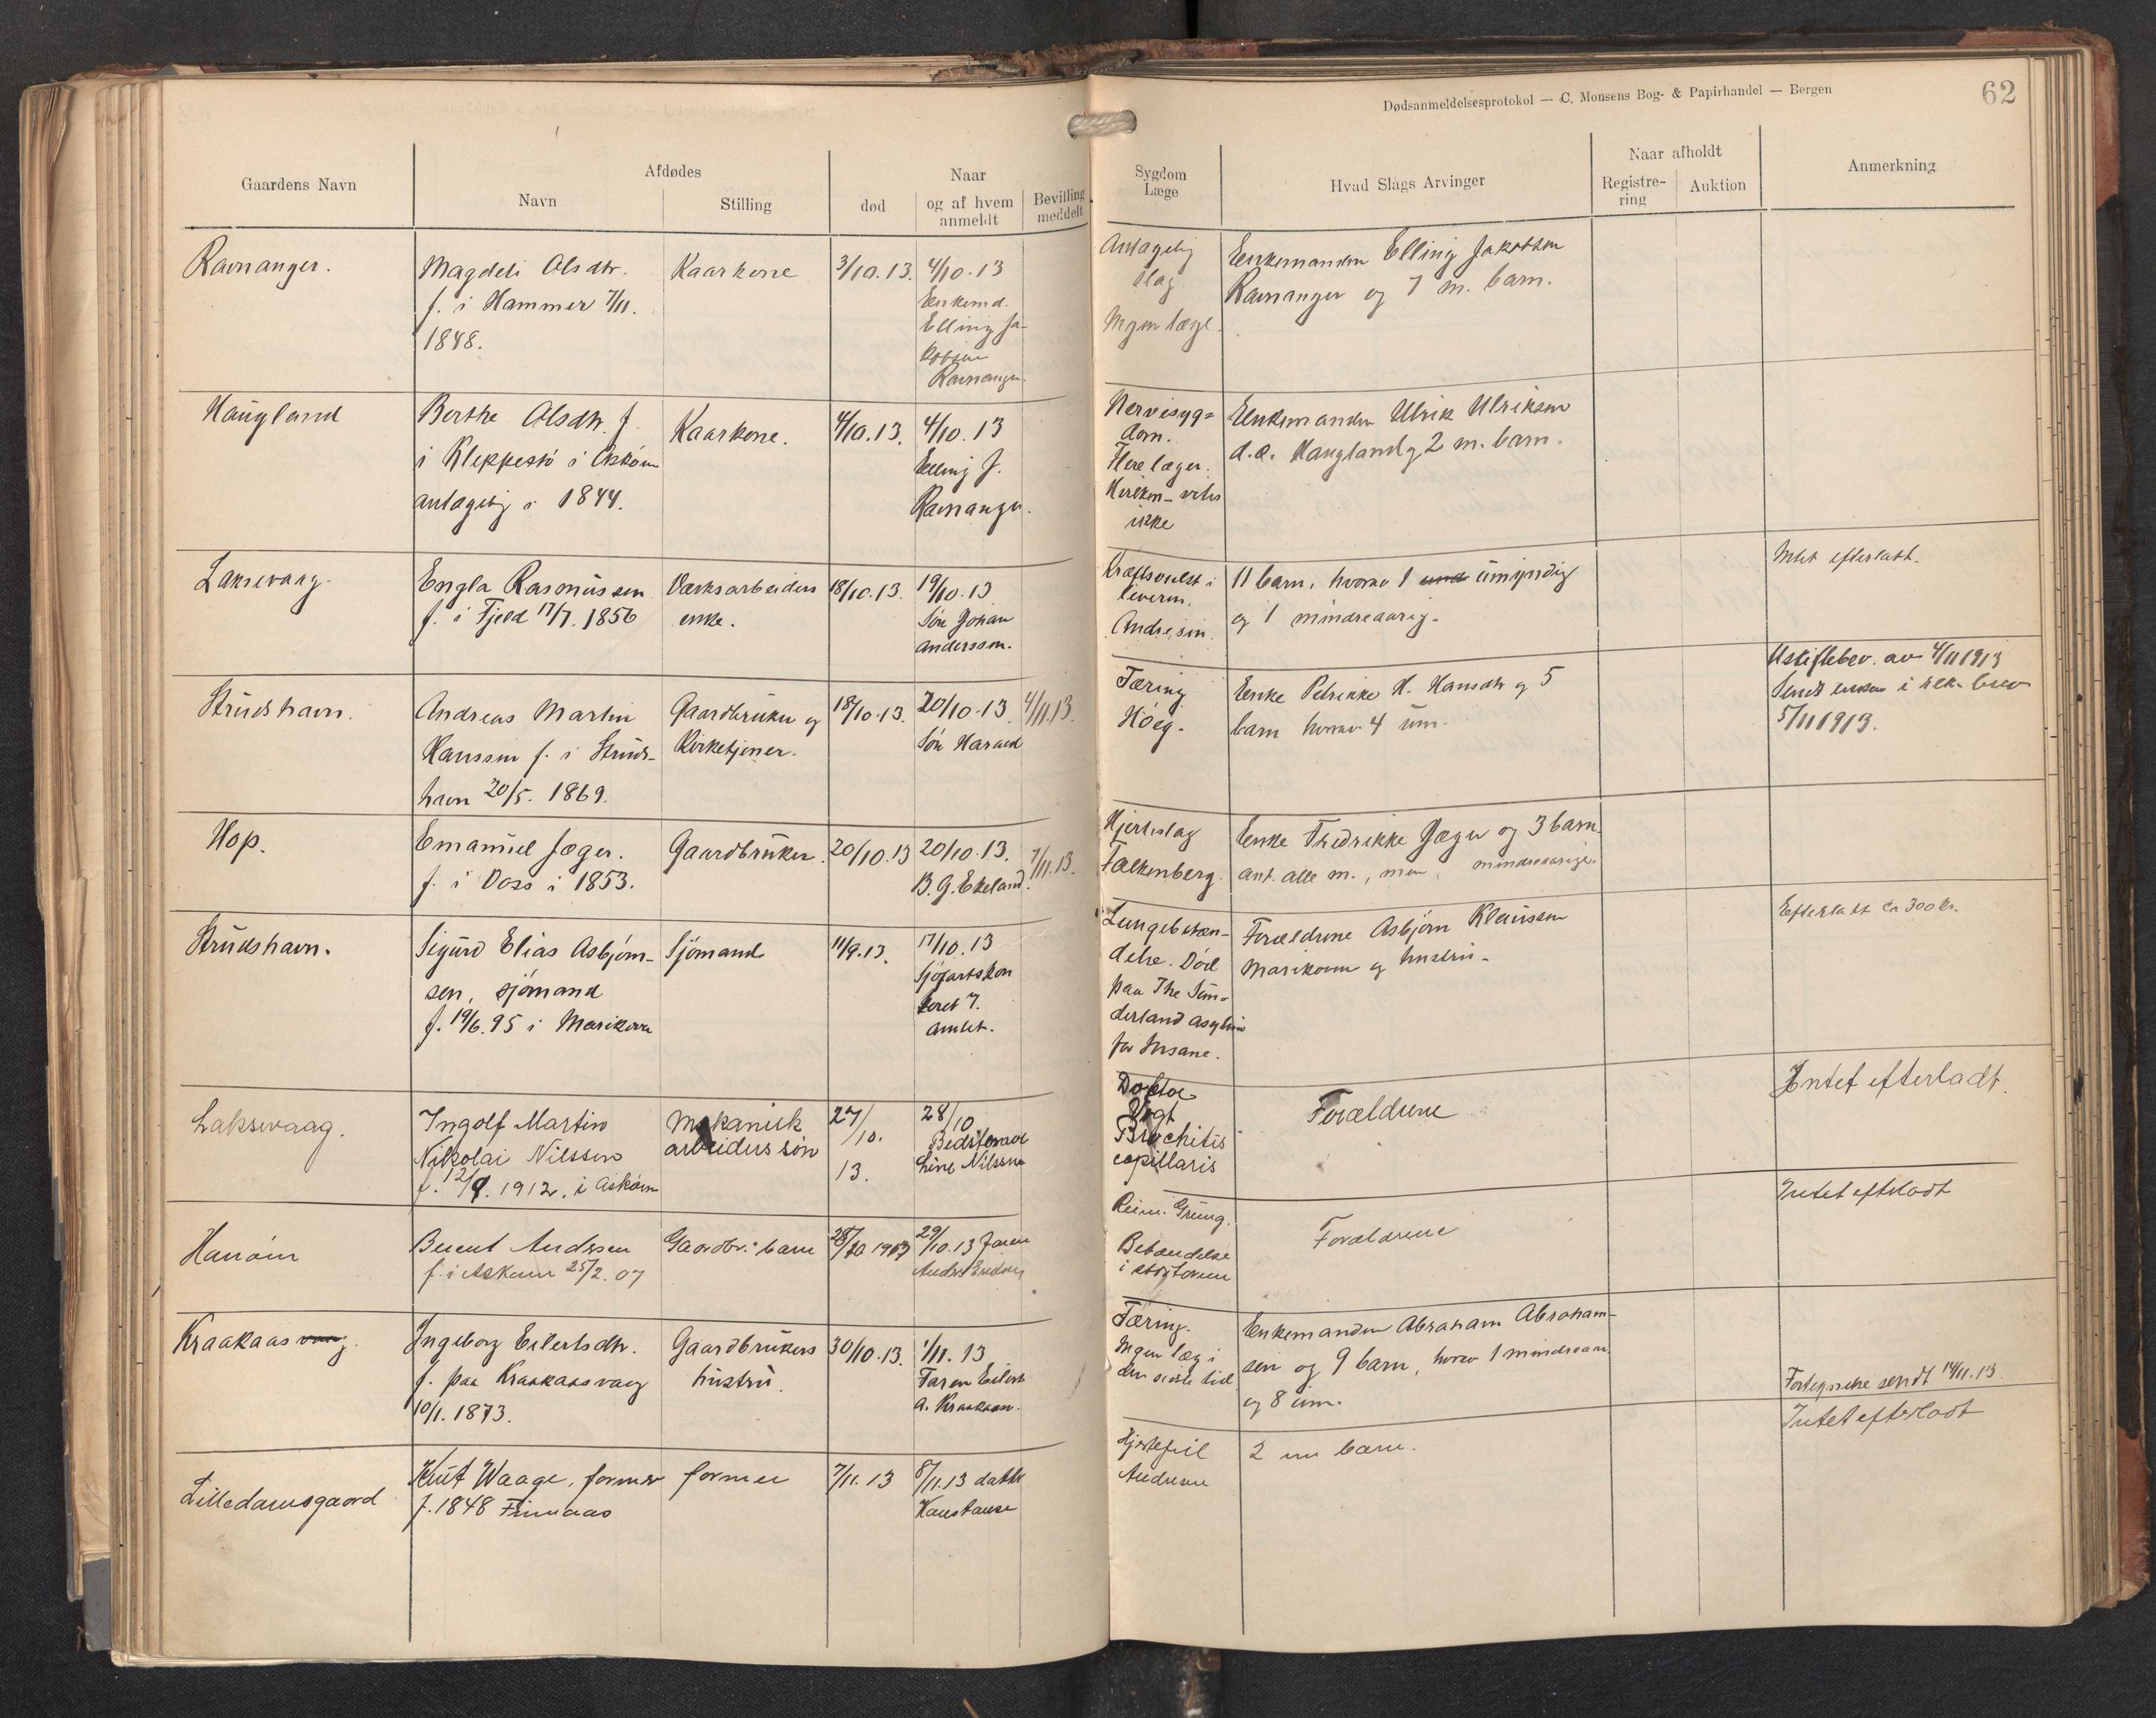 Dødsanmeldelsesprotokol — C. Monsens Bog- & Papirhandel — Bergen
62
Gaardens Navn
Afdødes
Navn
Stilling
død
Naar
og af hvem
anmeldt
Bevilling
meddelt
Sygdom
Læge
Hvad Slags Arvinger
Naar afholdt
Registre-
ring
Auktion
Anmerkning
Ravnanger.
Magdeli Olsdtr.
f. i Hammer 7/11.
1848.
Kaarkone
3/10.13.
4/10.13
Enkemd.
Elling Ja-
kobsen
Ravnanger.
Antagelig
slag
Ingen læge.
Enkemanden Elling Jakobsen
Ravnanger og 7 m. barn.
Haugland
Berthe Olsdtr. f.
i Kleppestø i Askøen
antagelig i 1844.
Kaarkone.
4/10.13.
4/10.13
Elling J.
Ravnanger.
Nervesyg=
dom.
Flere læger.
Hvilken vites
ikke
Enkemanden Ulrik Ulriksen
d.æ. Haugland og 2 m. barn.
Laksevaag.
Engla Rasmussen
f. i Fjeld 17/7. 1856
Værksarbeiders
enke.
18/10.13.
19/10.13
Søn Johan
Anderssen.
Kræftsvulst i
leveren.
Andresen.
11 barn, hvorav 1 und umyndig
og 1 mindreaarig.
Intet efterladt.
Strudshavn.
Andreas Martin
Hanssen f. i Struds-
havn 20/5. 1869.
Gaardbruker og
Kirketjener.
18/10.13.
20/10.13
Søn Harald
4/11.13.
Tæring
Høeg.
Enke Petrikke H. Hansdtr og 5
barn hvorav 4 um.
Uskiftebev. av 4/11 1913
Sendt enken i rek. brev
5/11 1913.
Hop.
Emanuel Jæger.
f. i Voss i 1853.
Gaardbruker.
20/10.13
20/10.13.
B. G. Ekeland.
7/11.13.
Hjerteslag
Falkenberg.
Enke Fredrikke Jæger og 3 barn.
ant. alle m., men mindreaarige.
Strudshavn.
Sigurd Elias Asbjørn-
sen, sjømand
f. 19/6.95 i Marikoven
Sjømand
11/9.13.
17/10.13
Sjøfartskon
toret 7.
amtet.
Lungebetæn-
delse. Død
paa The Sun-
derland asylum
for Insane.
Forældrene Asbjørn Klaussen
Marikoven og hustru.
Efterladt ca 300 kr.
Laksevaag.
Ingolf Martin
Nikolai Nilssen
f. 12/9. 1912. i Askøen
Mekanisk
arbeiders søn
27/10.
13.
28/10
Bedstemor
Line Nilssen
Doktor
Vogt
Brochitis
capillaris
Forældrene
Intet efterladt.
Hanøen
Berent Andersen
f. i Askøen 25/2.07
Gaardbr. barn
28/10 1913
29/10.13 Faren
Reim. Greing.
Betændelse
i
Forældrene
Intet efterladt
Kraakaas vaag.
Ingeborg Eilertsdtr.
f. paa Kraakaasvaag
10/1. 1873.
Gaardbrukers
hustru.
30/10.13.
1/11.13
Faren Eilert
A. Kraakaas.
Tæring.
Ingen læge i
den sidste tid
Enkemanden Abraham Abraham-
sen og 9 barn, hvorav 1 mindreaar.
og 8 um.
Fortegnelse sendt 14/11.13.
Lilledamsgaard
Knut Waage, former
f. 1848 Finnaas
former
7/11.13
8/11.13 datter
Konstanse
Hjertefeil
Andresen
2 m barn.
Intet efterladt